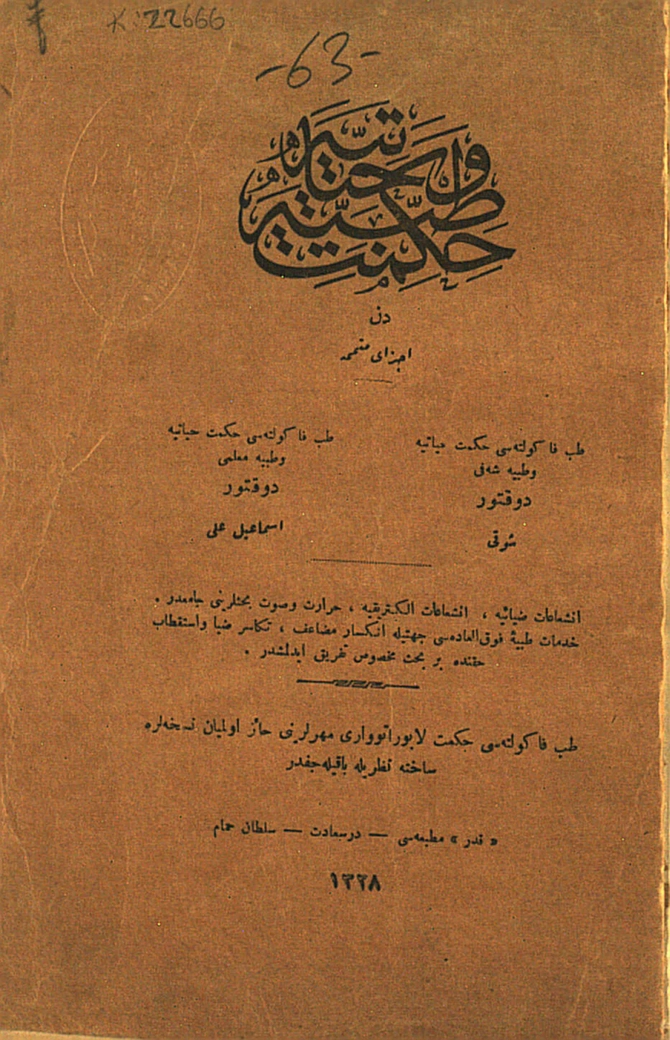 K: 22666
-63-
حكمت طبيه وحياتيه
دن
اجزای متممه
طب فاكولتهسی حكمت حياتيه
وطبيه شفی
دوقتور
شوقی
طب فاكولتهسی حكمت حياتيه
وطبيه معلمی
دوقتور
اسماعيل علی
انشعاعات ضيائيه ، انشعاعات الكتريقيه ، حرارت وصوت بحثلرينی جامعدر .
خدمات طبيۀ فوق‌العاده‌سی جهتيله انكسار مضاعف ، تكاسر ضيا واستقطاب
حقنده بر بحث مخصوص تفريق ايدلمشدر .
طب فاكولته‌سی حكمت لابوراتوواری مهرلرينی حائز اولميان نسخه‌لره
ساخته نظريله باقيله‌جقدر
« قدر » مطبعه‌سی — درسعادت — سلطان حمام
١٣٢٨